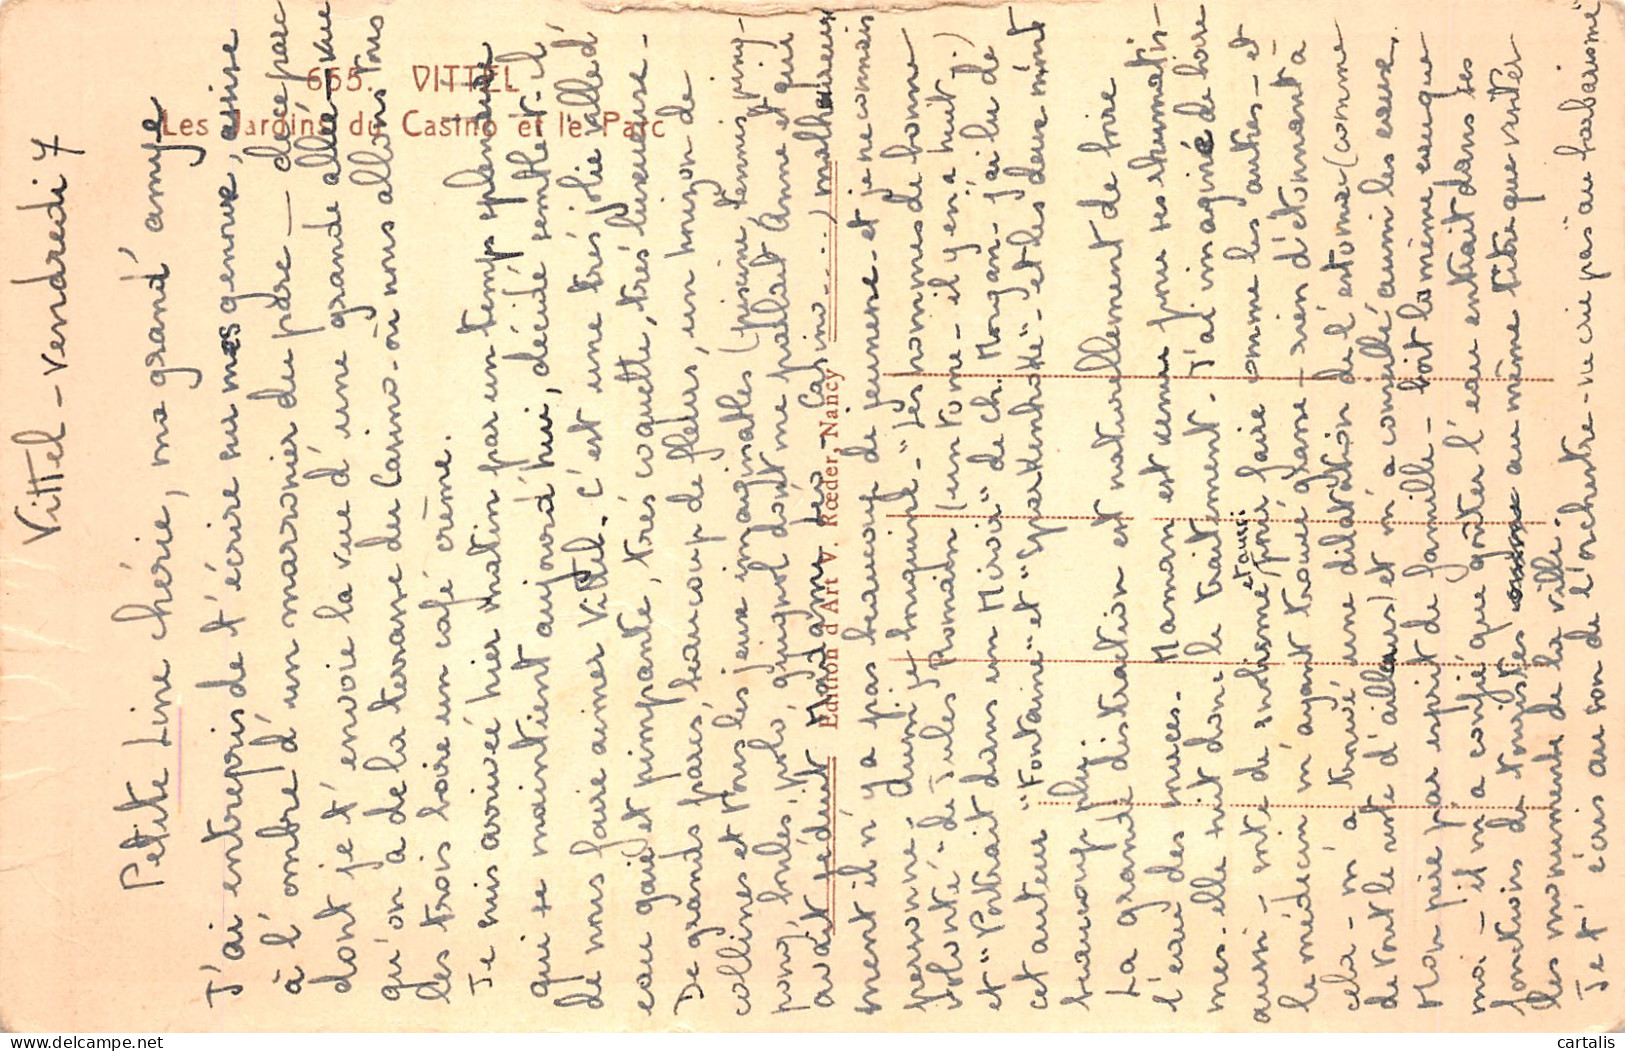 665. VITTEL
Les Jardins du Casino et le Parc
Edition d'Art V. Rœder, Nancy
Vittel - vendredi 7
Petite Line chérie, ma grand' amye
J'ai entrepris de t'écrire sur mes genoux, assise
à l'ombre d'un marronier du parc — de ce parc
dont je t'envoie la vue d'une grande allée - vue
qu'on a de la terrasse du Casino - où nous allons tous
les trois boire un café crème.
Je suis arrivée hier matin par un temps splendide
qui se maintient aujourd'hui, décidé semble-t-il
de nous faire aimer Vittel. C'est une très jolie ville d'
eau gaie et pimpante, très coquette, très luxueuse.
De grands parcs, beaucoup de fleurs, un horizon de
collines et tous les jeux imaginables (piscine, tennis, ping-
pong, boules, polo, guignol dont me parlait Anne et qui
avait séduit Madame Léo - Casino....) malheureuse
ment il n'y a pas beaucoup de jeunesse - et je ne connais
personne. Aussi je bouquine - "Les hommes de bonne
volonté" de Jules Romain (un tome - il y en a huit!)
et "Portrait dans un Miroir" de Ch. Morgan - j'ai lu de
cet auteur "Fontaine" et "Sparkenbroke" - et les deux m'ont
beaucoup plu.
La grande distraction est naturellement de boire
l'eau des sources. Maman est venue pour ses rhumatis-
mes. elle suit donc le traitement. J'ai imaginé de boire
aussi - et aussi pour faire comme les autres - et
le médecin m'ayant trouvé grasse - rien d'étonnant à
cela - m'a trouvé une dilatation de l'estomac (comme
de tout le reste d'ailleurs) et m'a conseillé aussi les eaux.
Mon père par esprit de famille - boit la même eau que
moi - il m'a confié que goûter l'eau entrait dans ses
fonctions de touristes au même titre que visiter
les monuments de la ville.
Je t'écris au son de l'orchestre - ne crie pas "au barbarisme"
cartalis